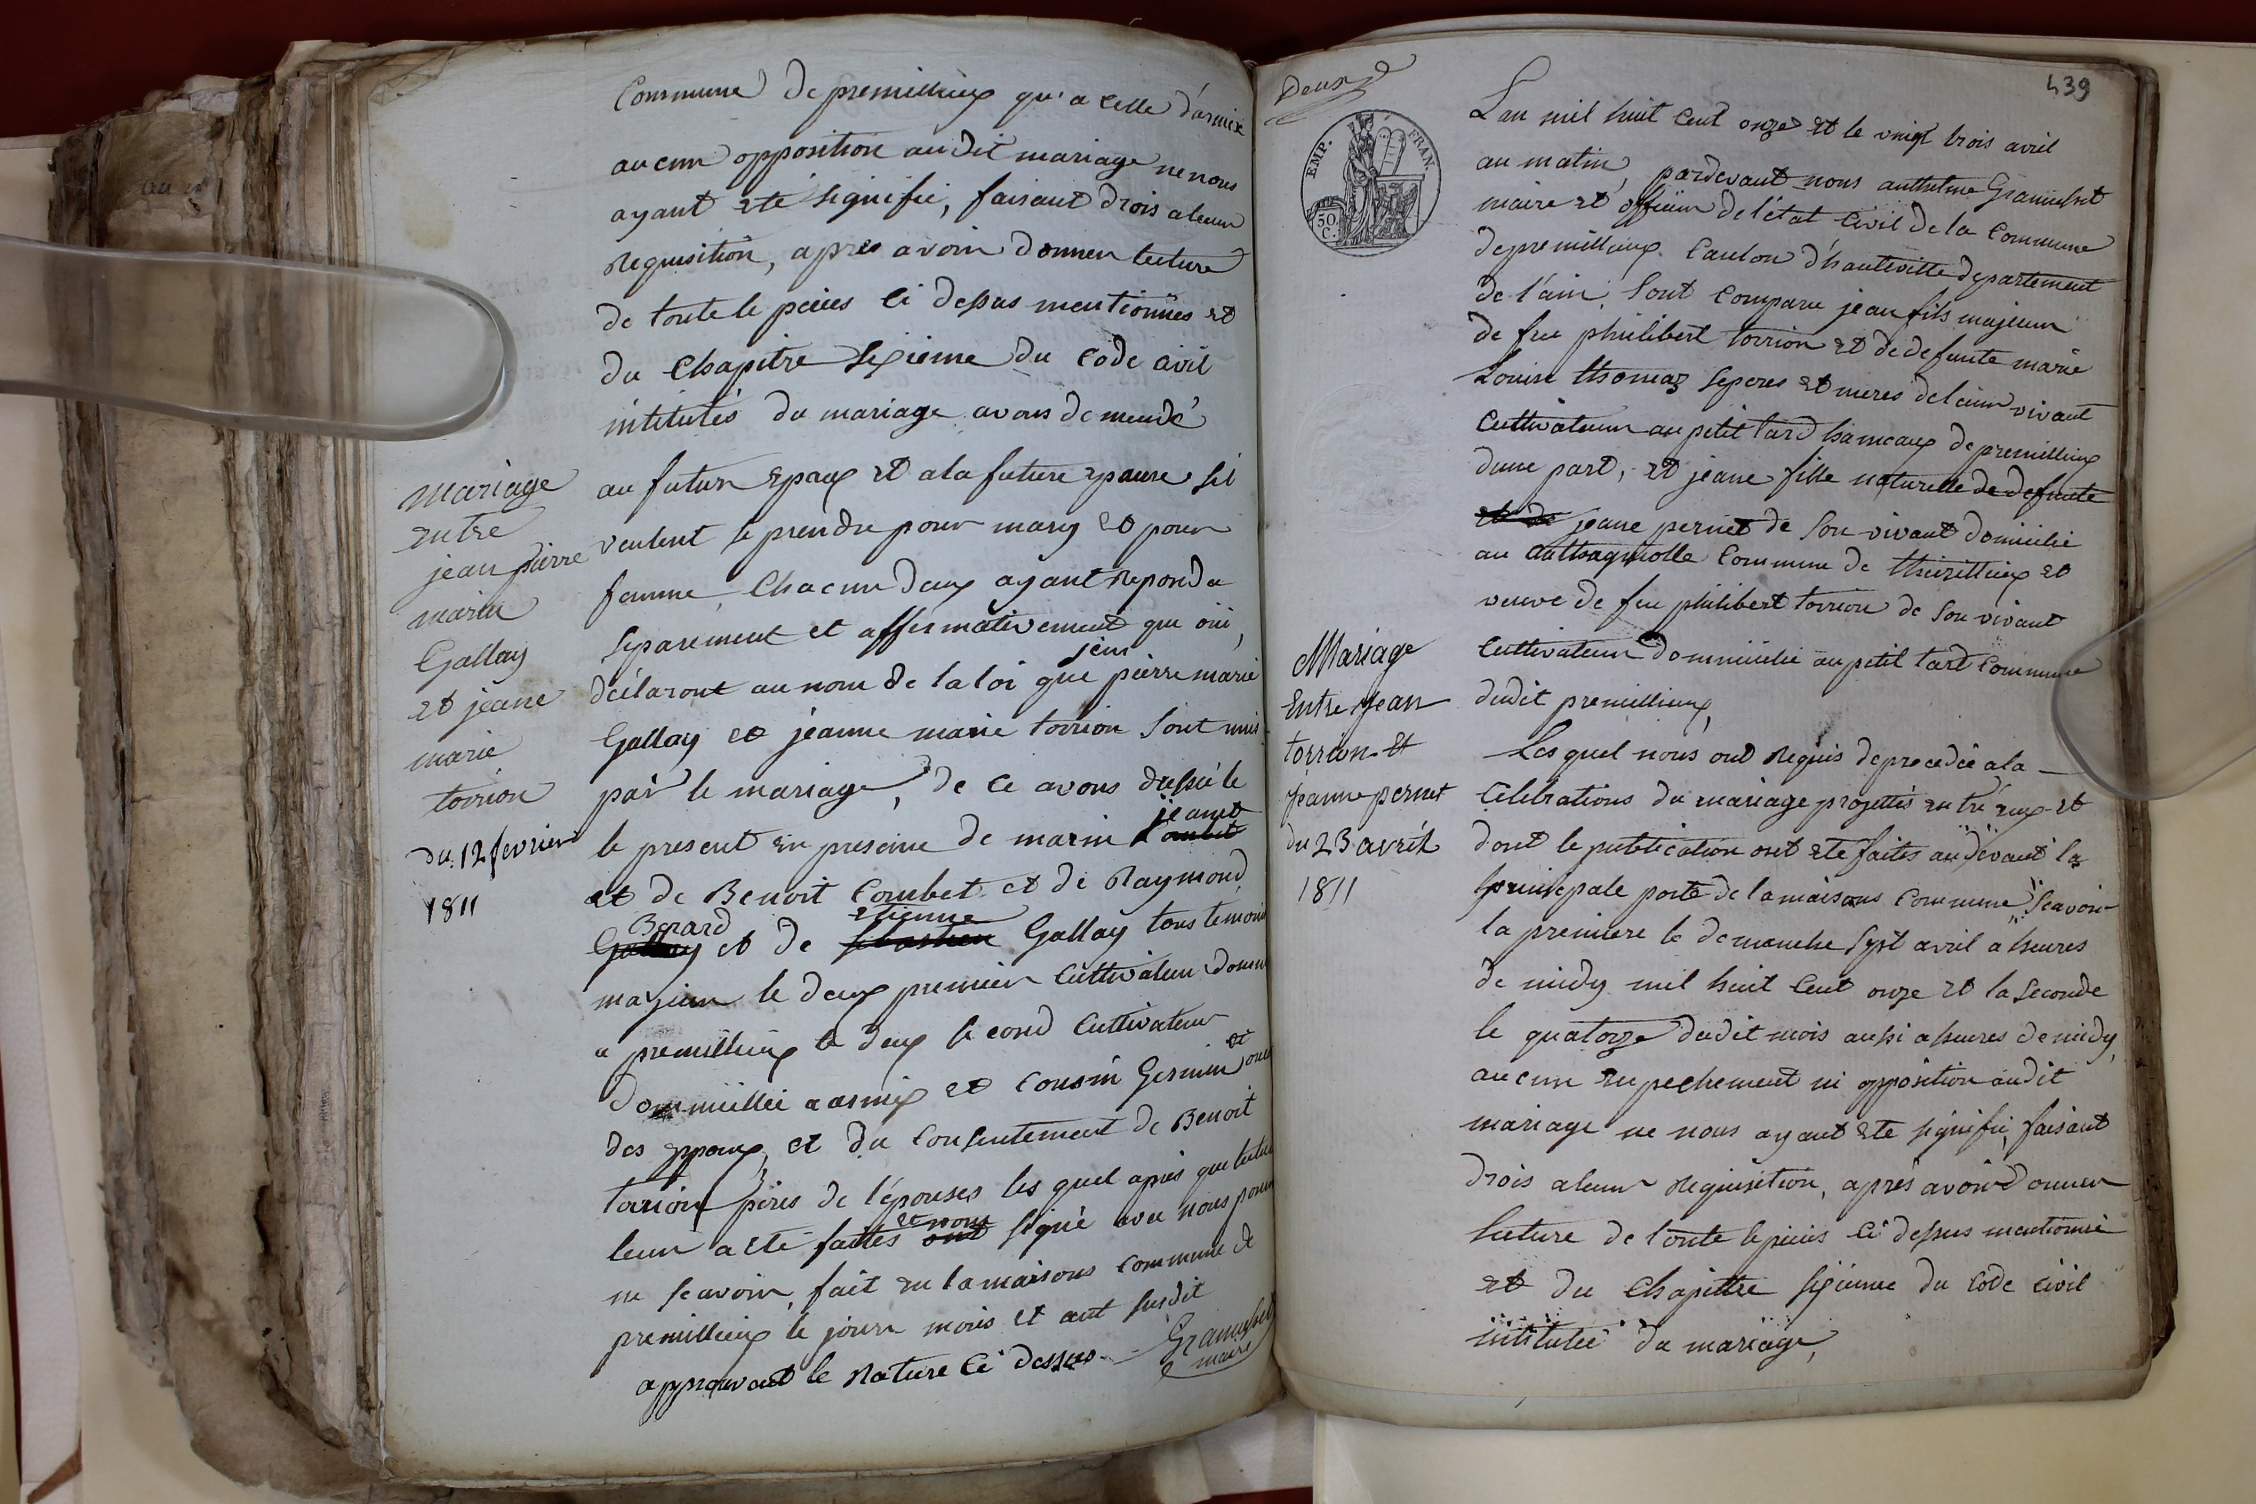 Commune de premillieux qu'a celle d'armix
aucun opposition audit mariage ne nous
ayant eté signifié, faisant drois a leur
Requisition, apres avoir donner lecture
de toute le pieces ci dessus mentionnés et
du Chapitre sixieme du Code civil
intitulés du mariage avons demendé
au futur epoux et a la future epouse sil
veulent se prendre pour mary et pour
femme, Chacun deux ayant Repondu
separement et affirmativement que oui,
jean
déclaront au nom de la loi que pierre marie
Gallay et jeanne marie torrion sont unis
par le mariage, de ce avons dressé le
jeanet
le present en presence de marin
et de Benoit Combet et de Raymond
Berard etienne
Gallay et de sebastien Gallay tous temoin
majeur le deux premier Cultivateur domi
a premillieux le deux second Cultivateur
domicillié a armix et cousin Germin et
des eppoux, et du consentement de Benoit
torrion pères de l'épouses les quel après que lecture
et nont
leur a eté faites ont signé avec nous pour
ne scavoir, fait en la maisons commune de
premillieux le jour mois et ant susdit
approuvant le Rature ci dessus. Gramusset
maire
mariage
entre
jean pierre
marie
Gallay
et jeane
marie
torrion
du 12 fevrier
1811
Deux
439
EMP. FRAN.
50 C.
Lan mil huit cent onze et le vingt trois avril
au matin, pardevant nous anthelme Gramusset
maire et officier de l'état civil de la commune
de premillieux Canton d'hauteville departement
de l'ain, sont comparu jean fils majeur
de feu philibert torrion et de defunte marie
Louise thomaz se peres et meres de leur vivant
Cultivateur au petit tard hameaux de premillieux
dune part, et jeane fille naturelle de defunte
et de jeane pernet de son vivant domicilié
au commune de thezillieux et
veuve de feu philibert torrion de son vivant
Cultivateur domicilié au petit tard Commune
dudit premillieux,
Les quel nous ont Requis de procedée a la
Célébrations du mariage projettés entré eux et
dont le publication ont eté faites au devant la
principale porte de la maisons commune, scavoir
la premiere le demanche sept avril a heures
de midy mil huit cent onze et la seconde
le quatorze dudit mois aussi a heures de midy,
aucun enpechement ni opposition audit
mariage ne nous ayant eté signifié, faisant
drois a leur Requisition, après avoir donner
lecture de toute le pieces ci dessus mentionné
et du Chapitre sixieme du Code civil
intitulée du mariage,
Mariage
Entre jean
torrion et
jeanne pernet
du 23 avril
1811